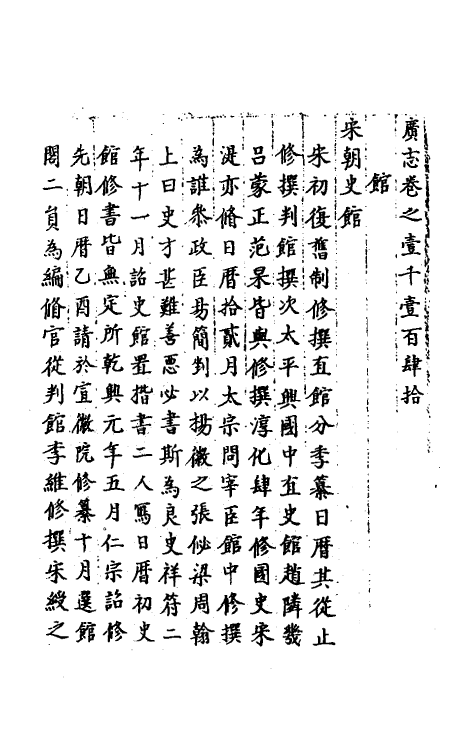 廣志卷之壹千壹百肆拾
館
宋朝史館
宋初復舊制修撰直館分季纂日曆其從止
修撰判館撰次太平興國中直史館趙隣幾
呂蒙正范杲皆與修撰淳化肆年修國史宋
湜亦脩日曆拾貳月太宗問宰臣館中修撰
為誰叅政臣易簡對以楊徽之張佖梁周翰
上曰史才甚難善惡必書斯為良史祥符二
年十一月詔史館置揩書二人寫日曆初史
館修書皆無定所乾興元年五月仁宗詔修
先朝日曆乙酉請於宣徽院修纂十月選館
閣二員為編脩官從判館李維修撰宋綬之